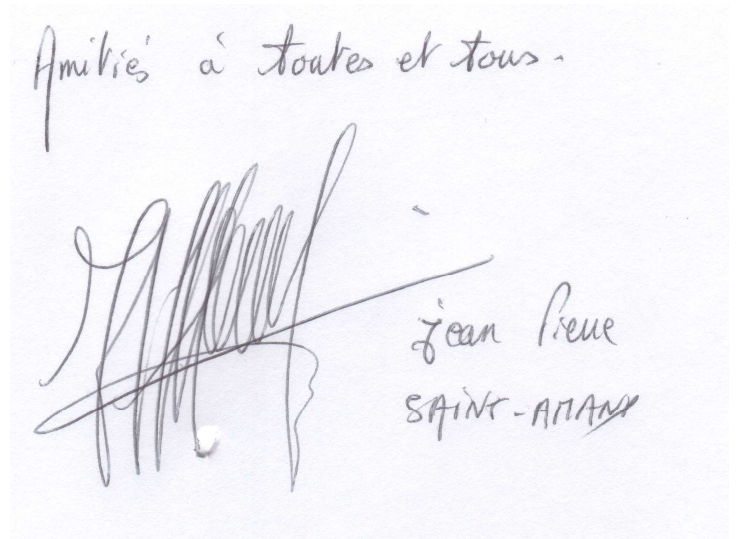 Amitiés à toutes et tous.
jean Pierre
SAINT-AMANT